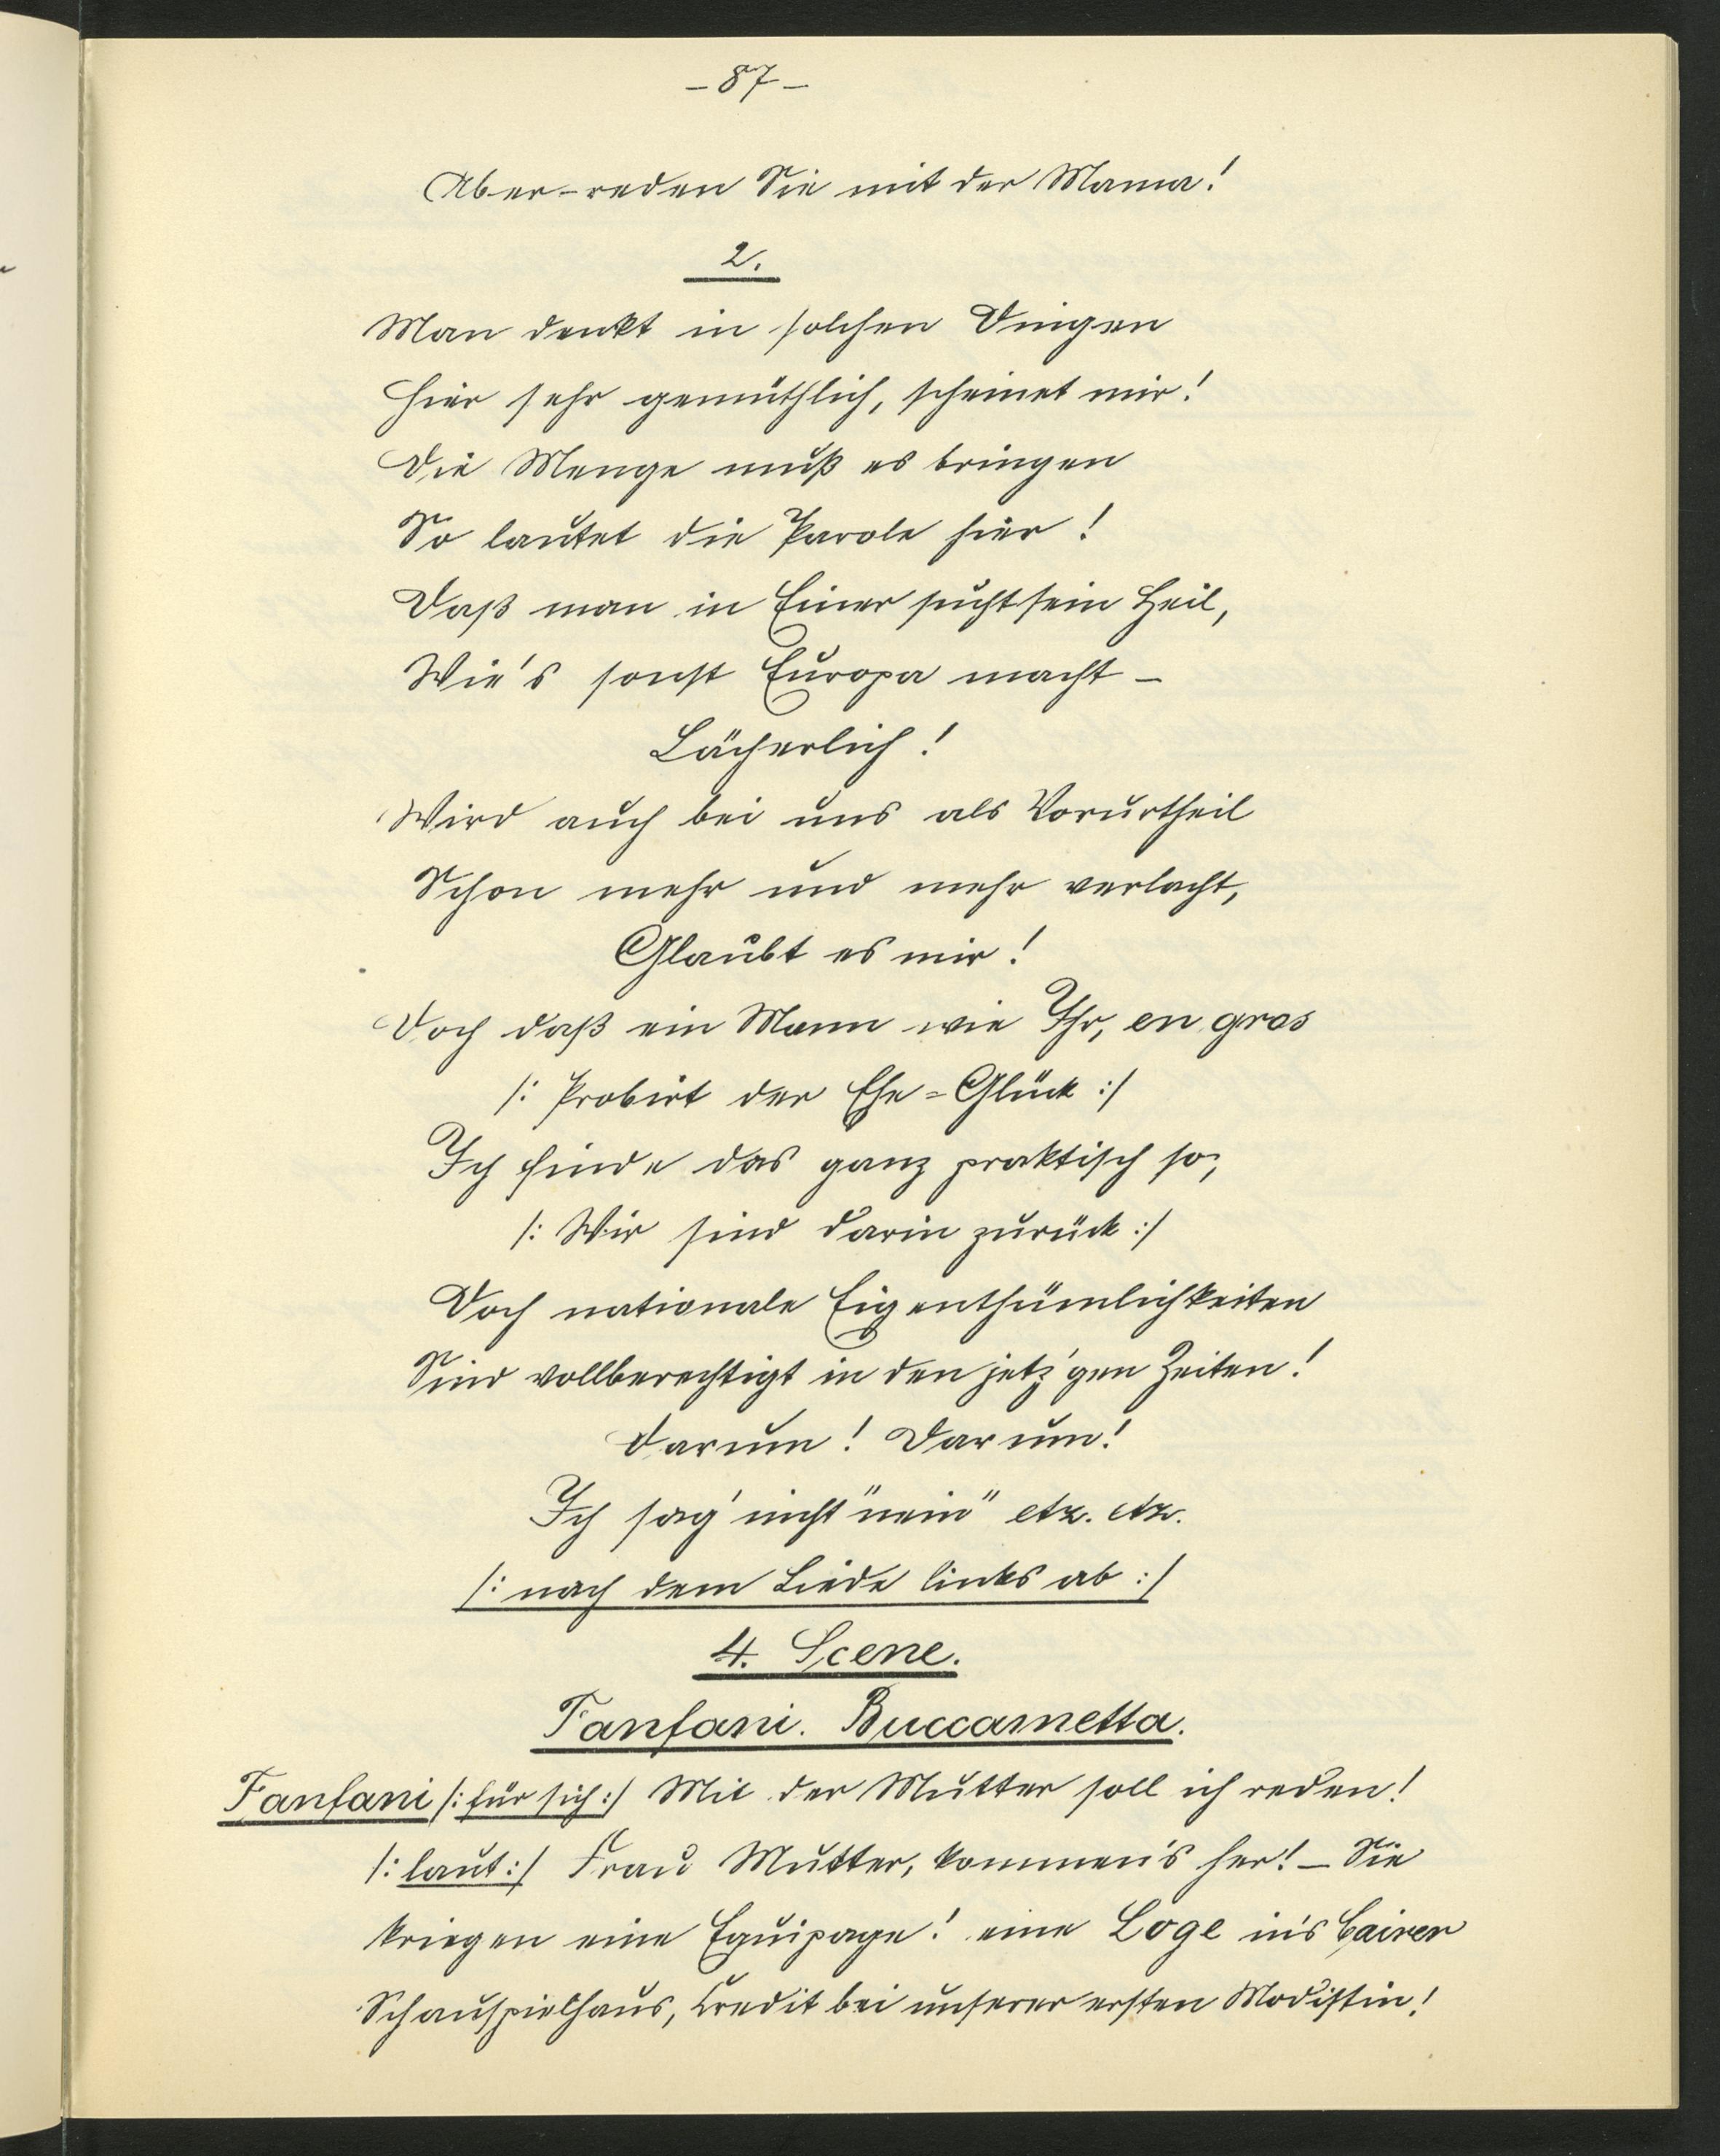 - 87 -
Aber - reden Sie mit der Mama!
2.
Man denkt in solchen Dingen
Hier sehr gemüthlich, scheinet mir!
Die Menge muß es bringen
So lautet die Parole hier!
Daß man in Einer sucht sein Heil,
Wie's sonst Europa macht -
Lächerlich!
Wird auch bei uns als Vorurtheil
Schon mehr und mehr verlacht,
Glaubt es mir!
Doch daß ein Mann wie Ihr, en gros
/: Probirt der Ehe=Glück :/
Ich finde das ganz praktisch so,
/: Wir sind darin zurück :/
Doch nationale Eigenthümlichkeiten
Sind vollberechtigt in den jetz'gen Zeiten!
Darum! Darum!
Ich sag' nicht "nein" etz. etz.
/: nach dem Liede links ab :/
4. Scene.
Fanfani. Buccametta.
Fanfani /: für sich :/ Mit der Mutter soll ich reden!
/: laut :/ Frau Mutter, kommen's her! - Sie
kriegen eine Equipage! eine Loge in's Cairer
Schauspielhaus, Credit bei unserer ersten Modistin!